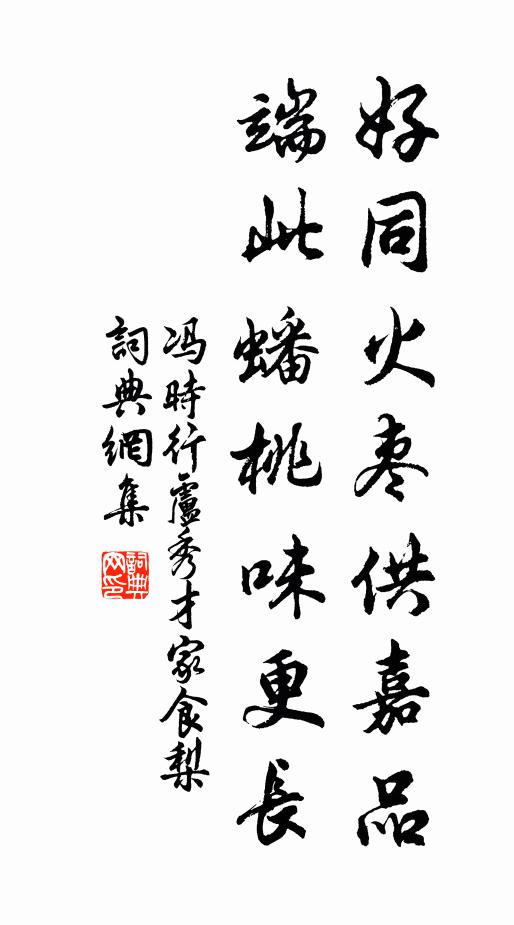 好同火枣供嘉品
端此蟠桃味更長
冯時行盧秀才家食梨
詞典網集
詞典网印